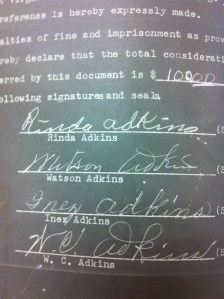 reference is hereby expressly made.
alties of fine and imprisonment as pro
reby declare that the total considerati
erred by this document is $ 10000
ollowing signature and seals
Rinda Adkins (S
Rinda Adkins
Watson Adkins (S
Watson Adkins
Inez Adkins (S
Inez Adkins
W. C. Adkins (S
W. C. Adkins